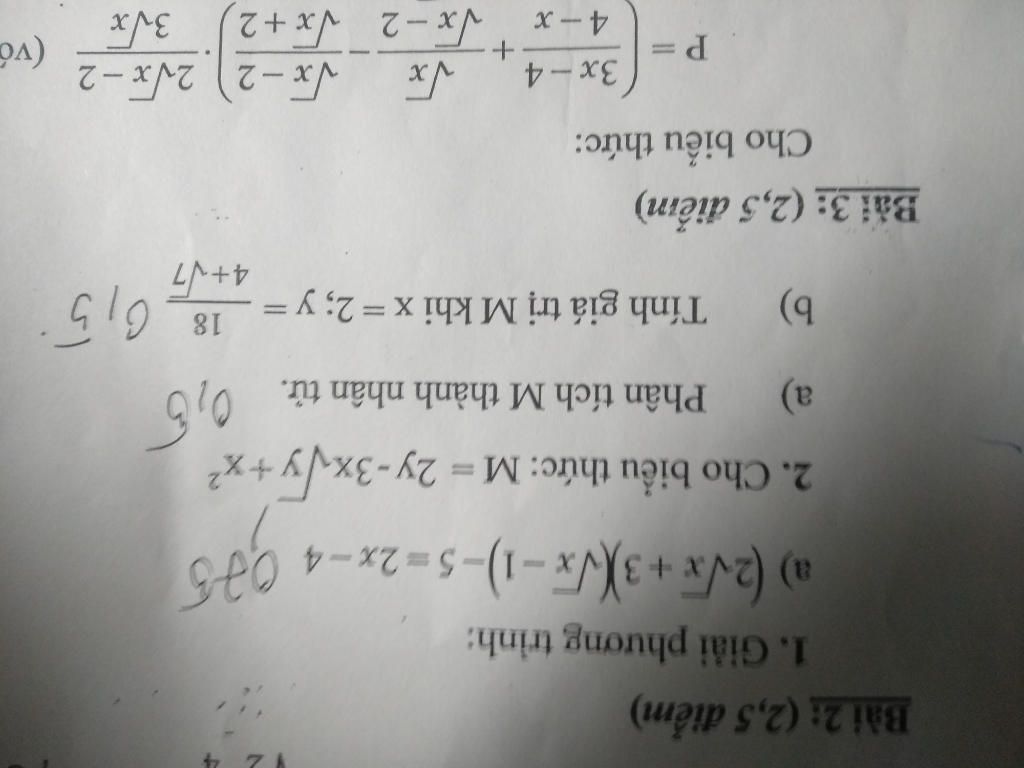 Bài 2: (2,5 điểm)
1. Giải phương trình:
a) (2√x + 3)(√x − 1) − 5 = 2x − 4 0,75
2. Cho biểu thức: M = 2y - 3x√y + x²
a) Phân tích M thành nhân tử. 0,5
b) Tính giá trị M khi x = 2; y = 18/(4+√7) 0,5
Bài 3: (2,5 điểm)
Cho biểu thức:
P = ((3x − 4)/(4 − x) + √x/(√x − 2) − (√x − 2)/(√x + 2)) · (2√x − 2)/(3√x) (vớ